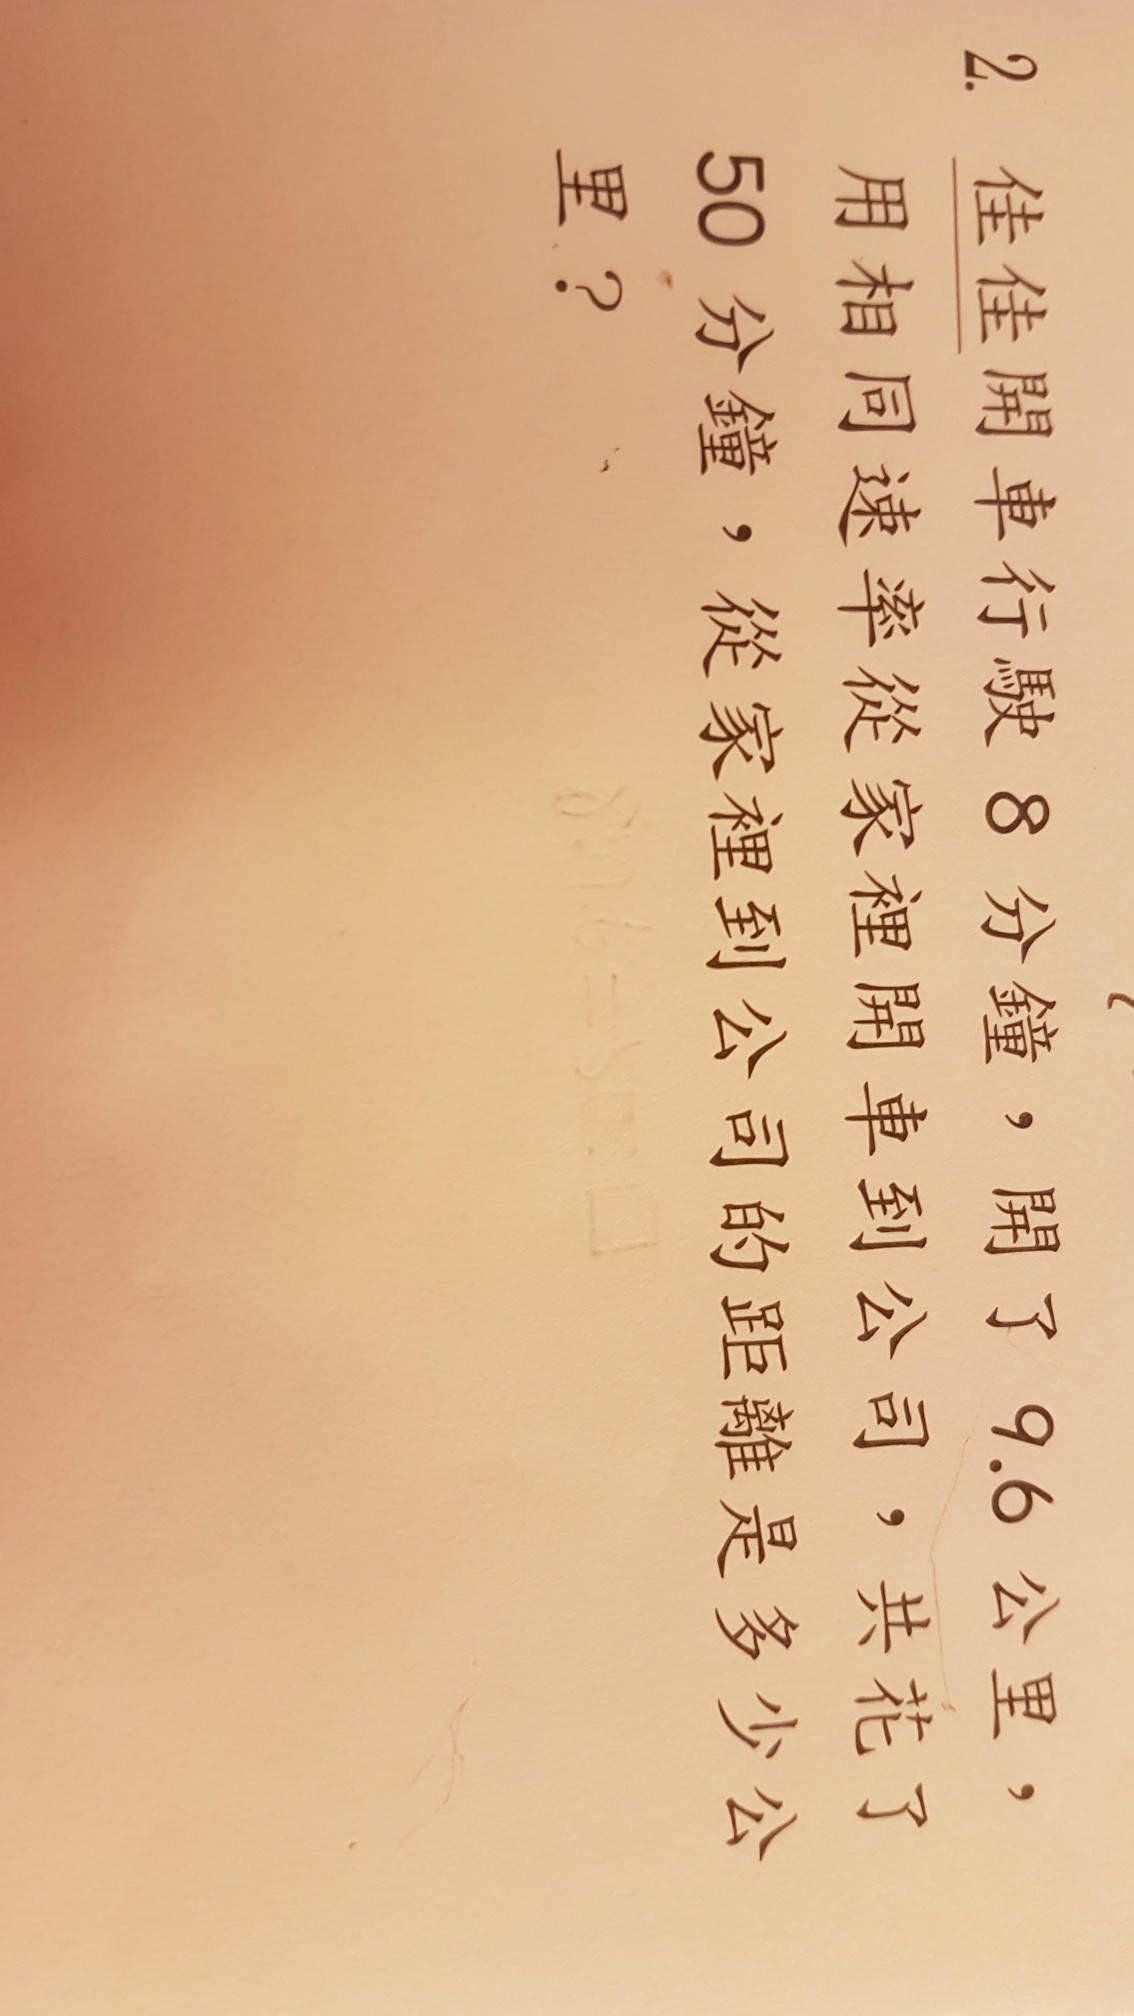 2. 佳佳開車行駛 8 分鐘，開了 9.6 公里，
用相同速率從家裡開車到公司，共花了
50 分鐘，從家裡到公司的距離是多少公
里？